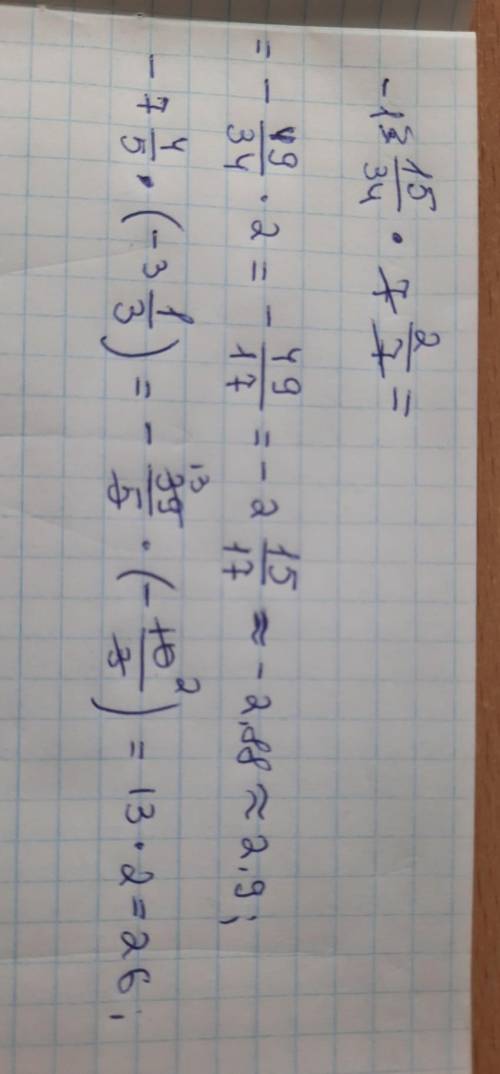 -1 15/34 · 7 2/7 =
= - 49/34 · 2 = - 49/17 = -2 15/17 ≈ -2,88 ≈ 2,9;
-7 4/5 · (-3 1/3) = - 39/5 13 · (- 10/3 2) = 13 · 2 = 26;